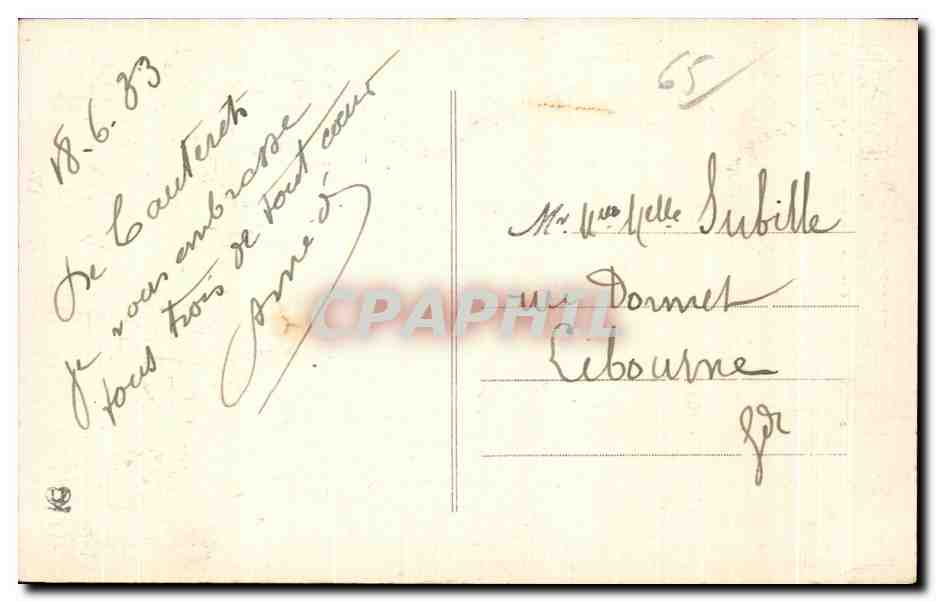 18-6-33
De Cauterets
je vous embrasse
tous trois de tout cœur
65
Mr Mme Melle Subille
rue Donnet
Libourne
Gde
CPARHIL